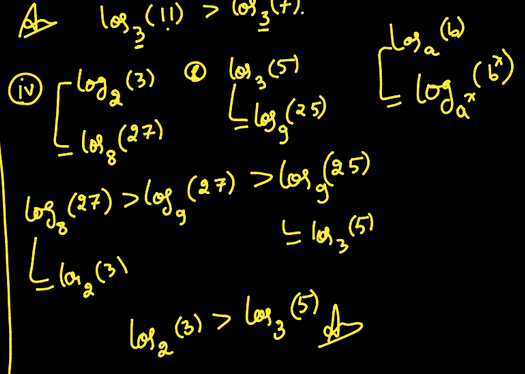 log₃(11) > log₃(7).
(iv) log₂(3) & log₃(5)
= log₈(27) = log₉(25)
logₐ(b)
= log_{aˣ}(bˣ)
log₈(27) > log₉(27) > log₉(25)
= log₂(3) = log₃(5)
log₂(3) > log₃(5)